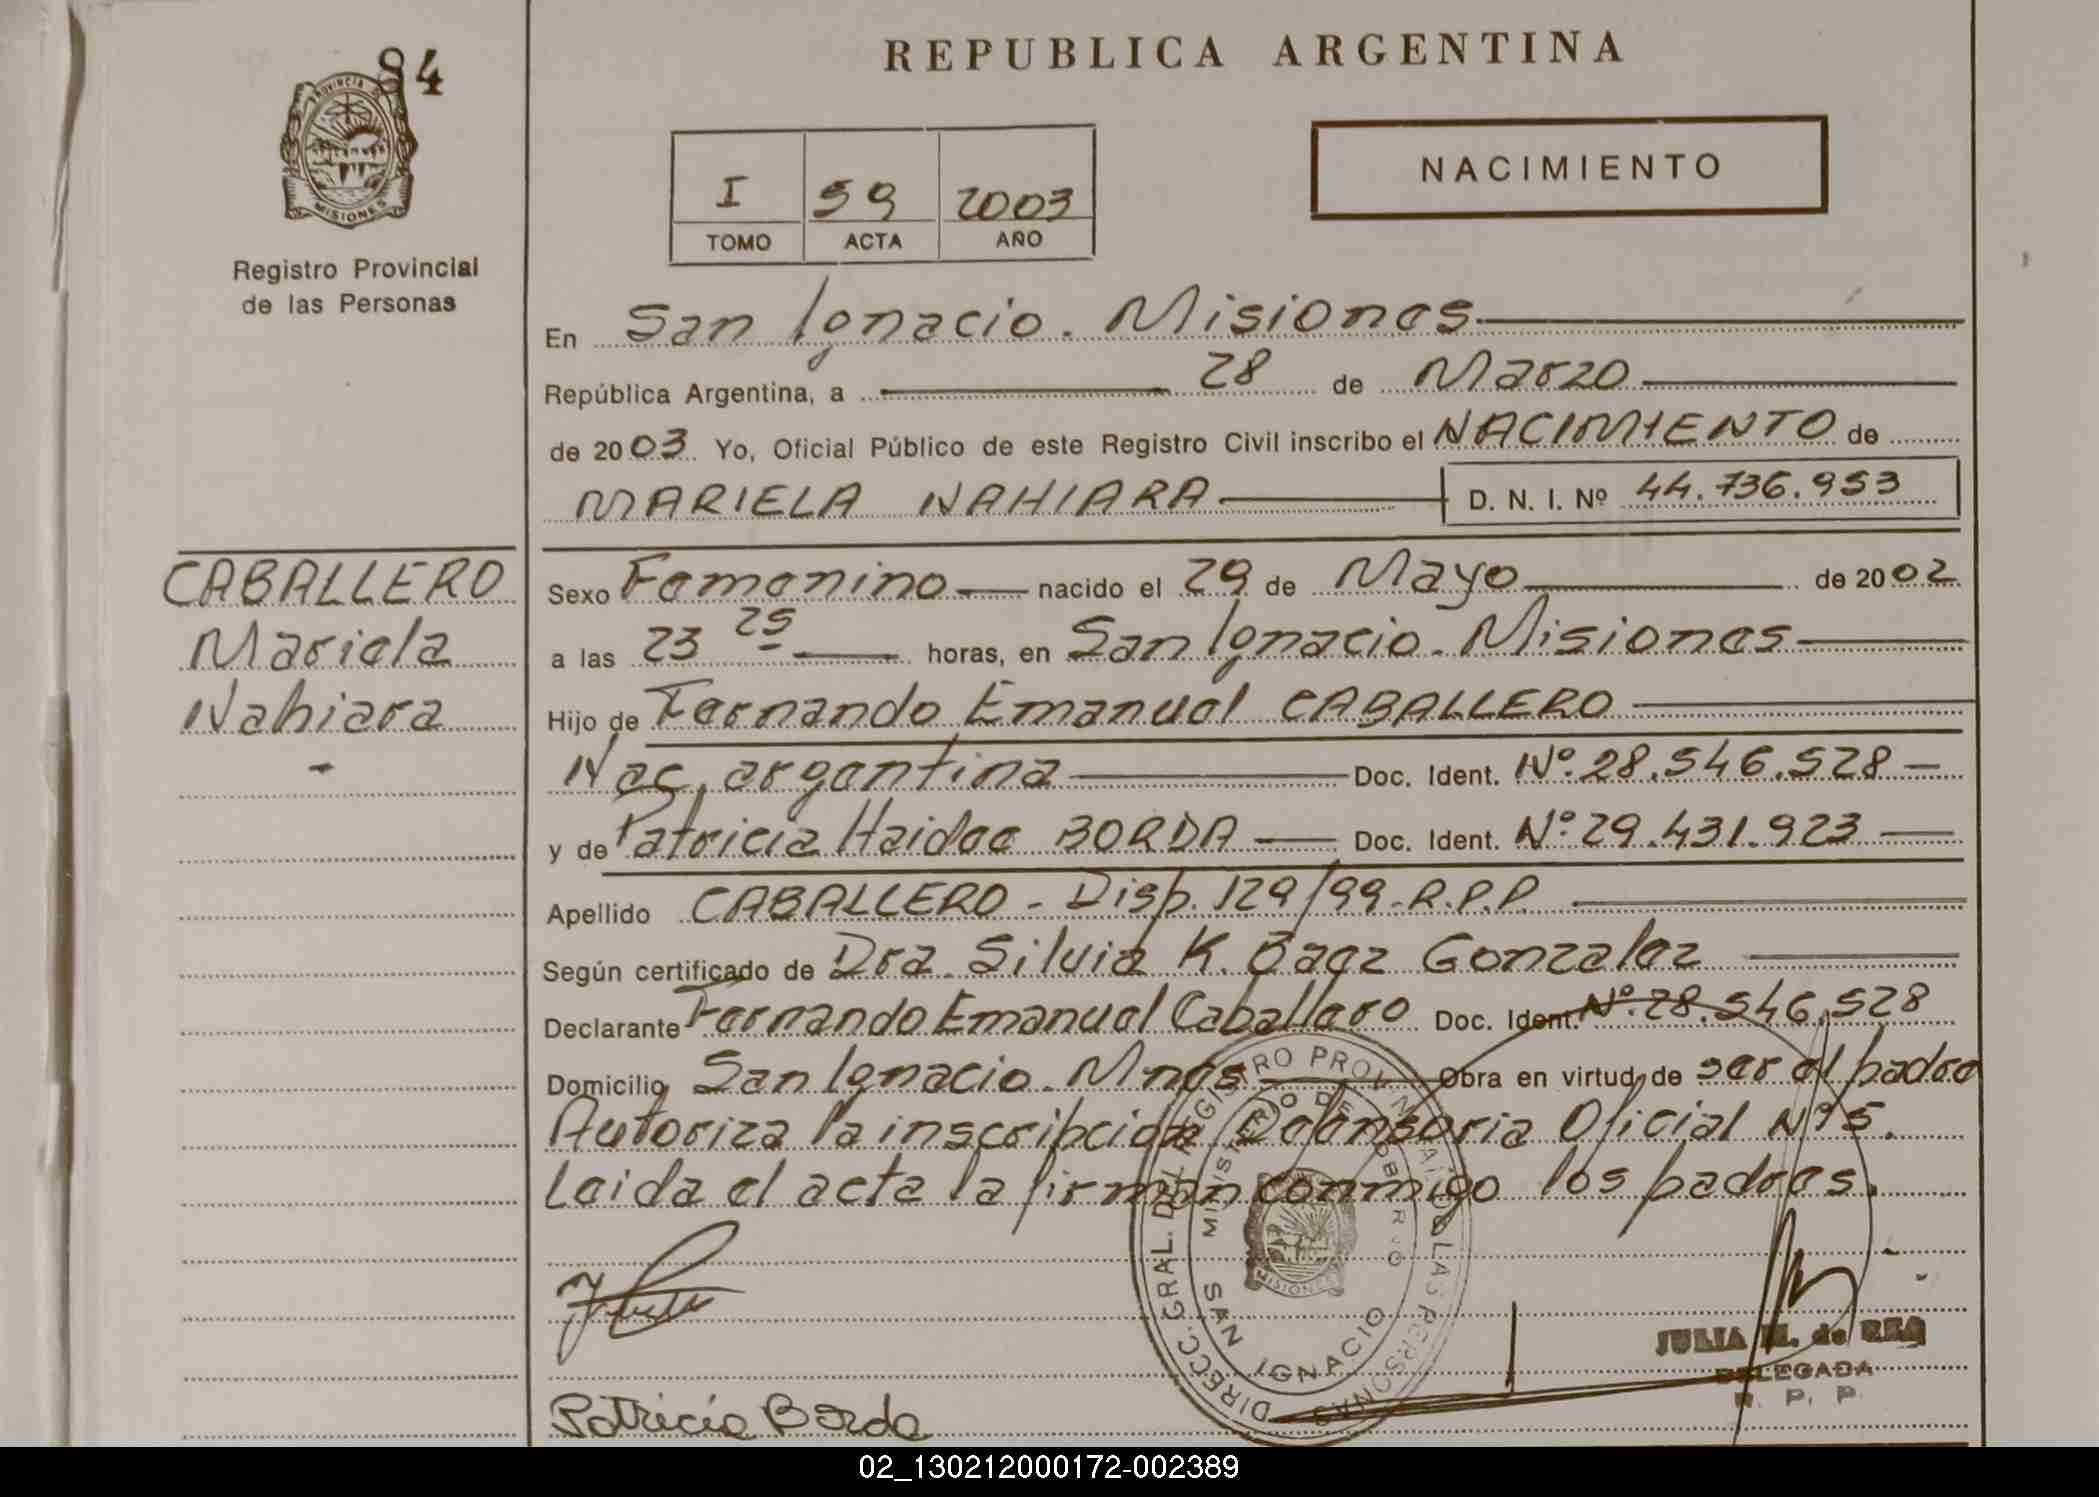 84
PROVINCIA DE
MISIONES
Registro Provincial
de las Personas
CABALLERO
Mariela
Nahiara
REPUBLICA ARGENTINA
I 59 2003
TOMO ACTA AÑO
NACIMIENTO
En San Ignacio. Misiones
República Argentina, a 28 de Marzo
de 2003 Yo, Oficial Público de este Registro Civil inscribo el NACIMIENTO de
MARIELA NAHIARA D. N. I. Nº 44.736.953
Sexo Femenino nacido el 29 de Mayo de 2002
a las 23 25 horas, en San Ignacio. Misiones
Hijo de Fernando Emanuel CABALLERO
Nac. argentina Doc. Ident. Nº 28.546.528
y de Patricia Haidee BORDA Doc. Ident. Nº 29.431.923
Apellido CABALLERO - Disp. 129/99-R.P.P.
Según certificado de Dra. Silvia K. Baez Gonzalez
Declarante Fernando Emanuel Caballero Doc. Ident. Nº 28.546.528
Domicilio San Ignacio. Mnes Obra en virtud de ser el padre
Autoriza la inscripción Defensoria Oficial Nº 5.
Leida el acta la firman conmigo los padres.
DIRECC. GRAL. DEL REGISTRO PROVINCIAL DE LAS PERSONAS
MINISTERIO DE GOBIERNO
MISIONES
SAN IGNACIO
JULIA M. de REG
DELEGADA
R. P. P.
Patricia Borda
02_130212000172-002389